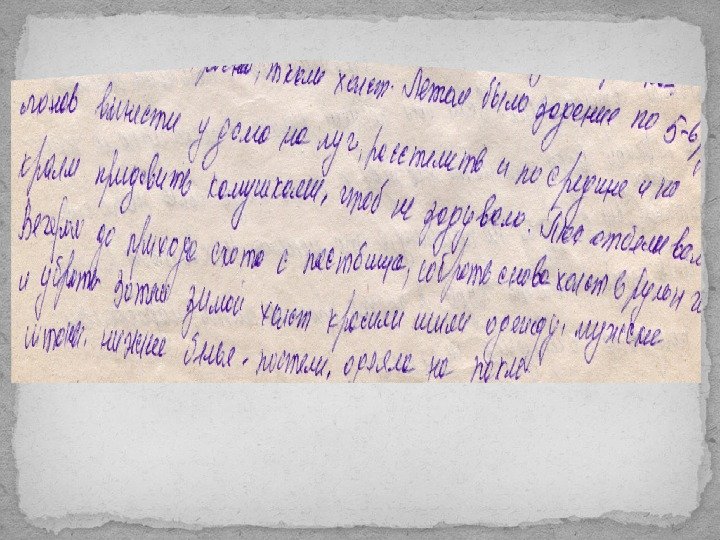 ткали холст. Летом было задание по 5-6
лонов вынести у дома на луг, расстелить и по средине и на
краям придавить камушками, чтоб не задувало. Так отбеливал
Вечером до прихода скота с пастбища, собрать снова холст в рулон
и убрать. Затем зимой холст красили шили одежду, мужские
штаны. нижнее белье. постели, одеяла на пакле